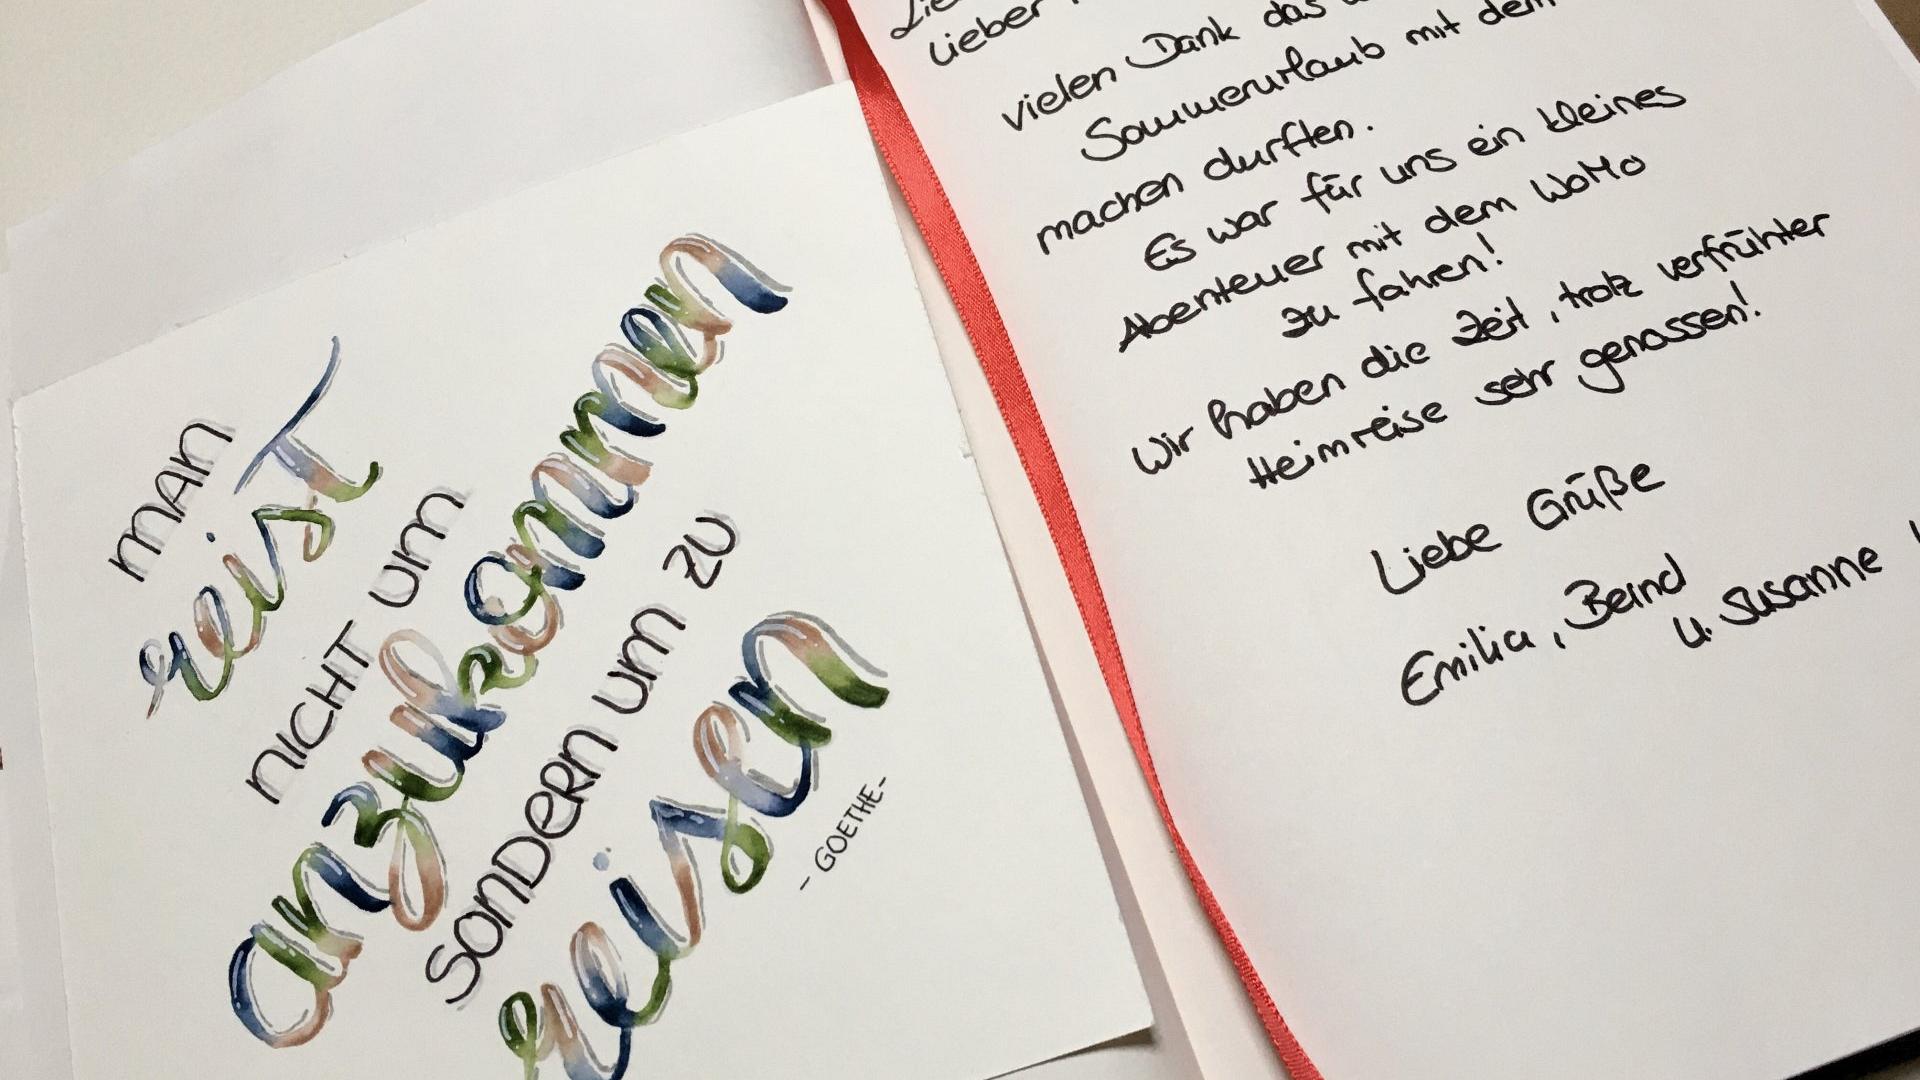 man
reist
nicht um
anzukommen
sondern um zu
reisen
- GOETHE -
Lieber
vielen Dank das
Sommerurlaub mit dem
machen durften.
Es war für uns ein kleines
Abenteuer mit dem WoMo
zu fahren!
Wir haben die Zeit, trotz verfrühter
Heimreise sehr genossen!
Liebe Grüße
Emilia, Bernd
u. Susanne